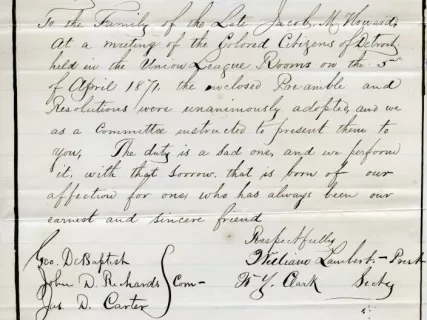 To the Family of the Late Jacob, M Howard,
At a meeting of the Colored Citizens of Detroit
held in the Union League Rooms on the 5
of April 1871, the enclosed Pre-amble and
Resolutions were unanimously adopted, and we
as a Committee instructed to present them to
you, The duty is a sad one, and we perform
it, with that sorrow, that is born of our
affection for one, who has always been our
earnest and sincere friend
Respectfully
Geo. DeBaptist
John D. Richards
Jas D. Carter
Com-
William Lambert - Prest
W. Y. Clark Secty